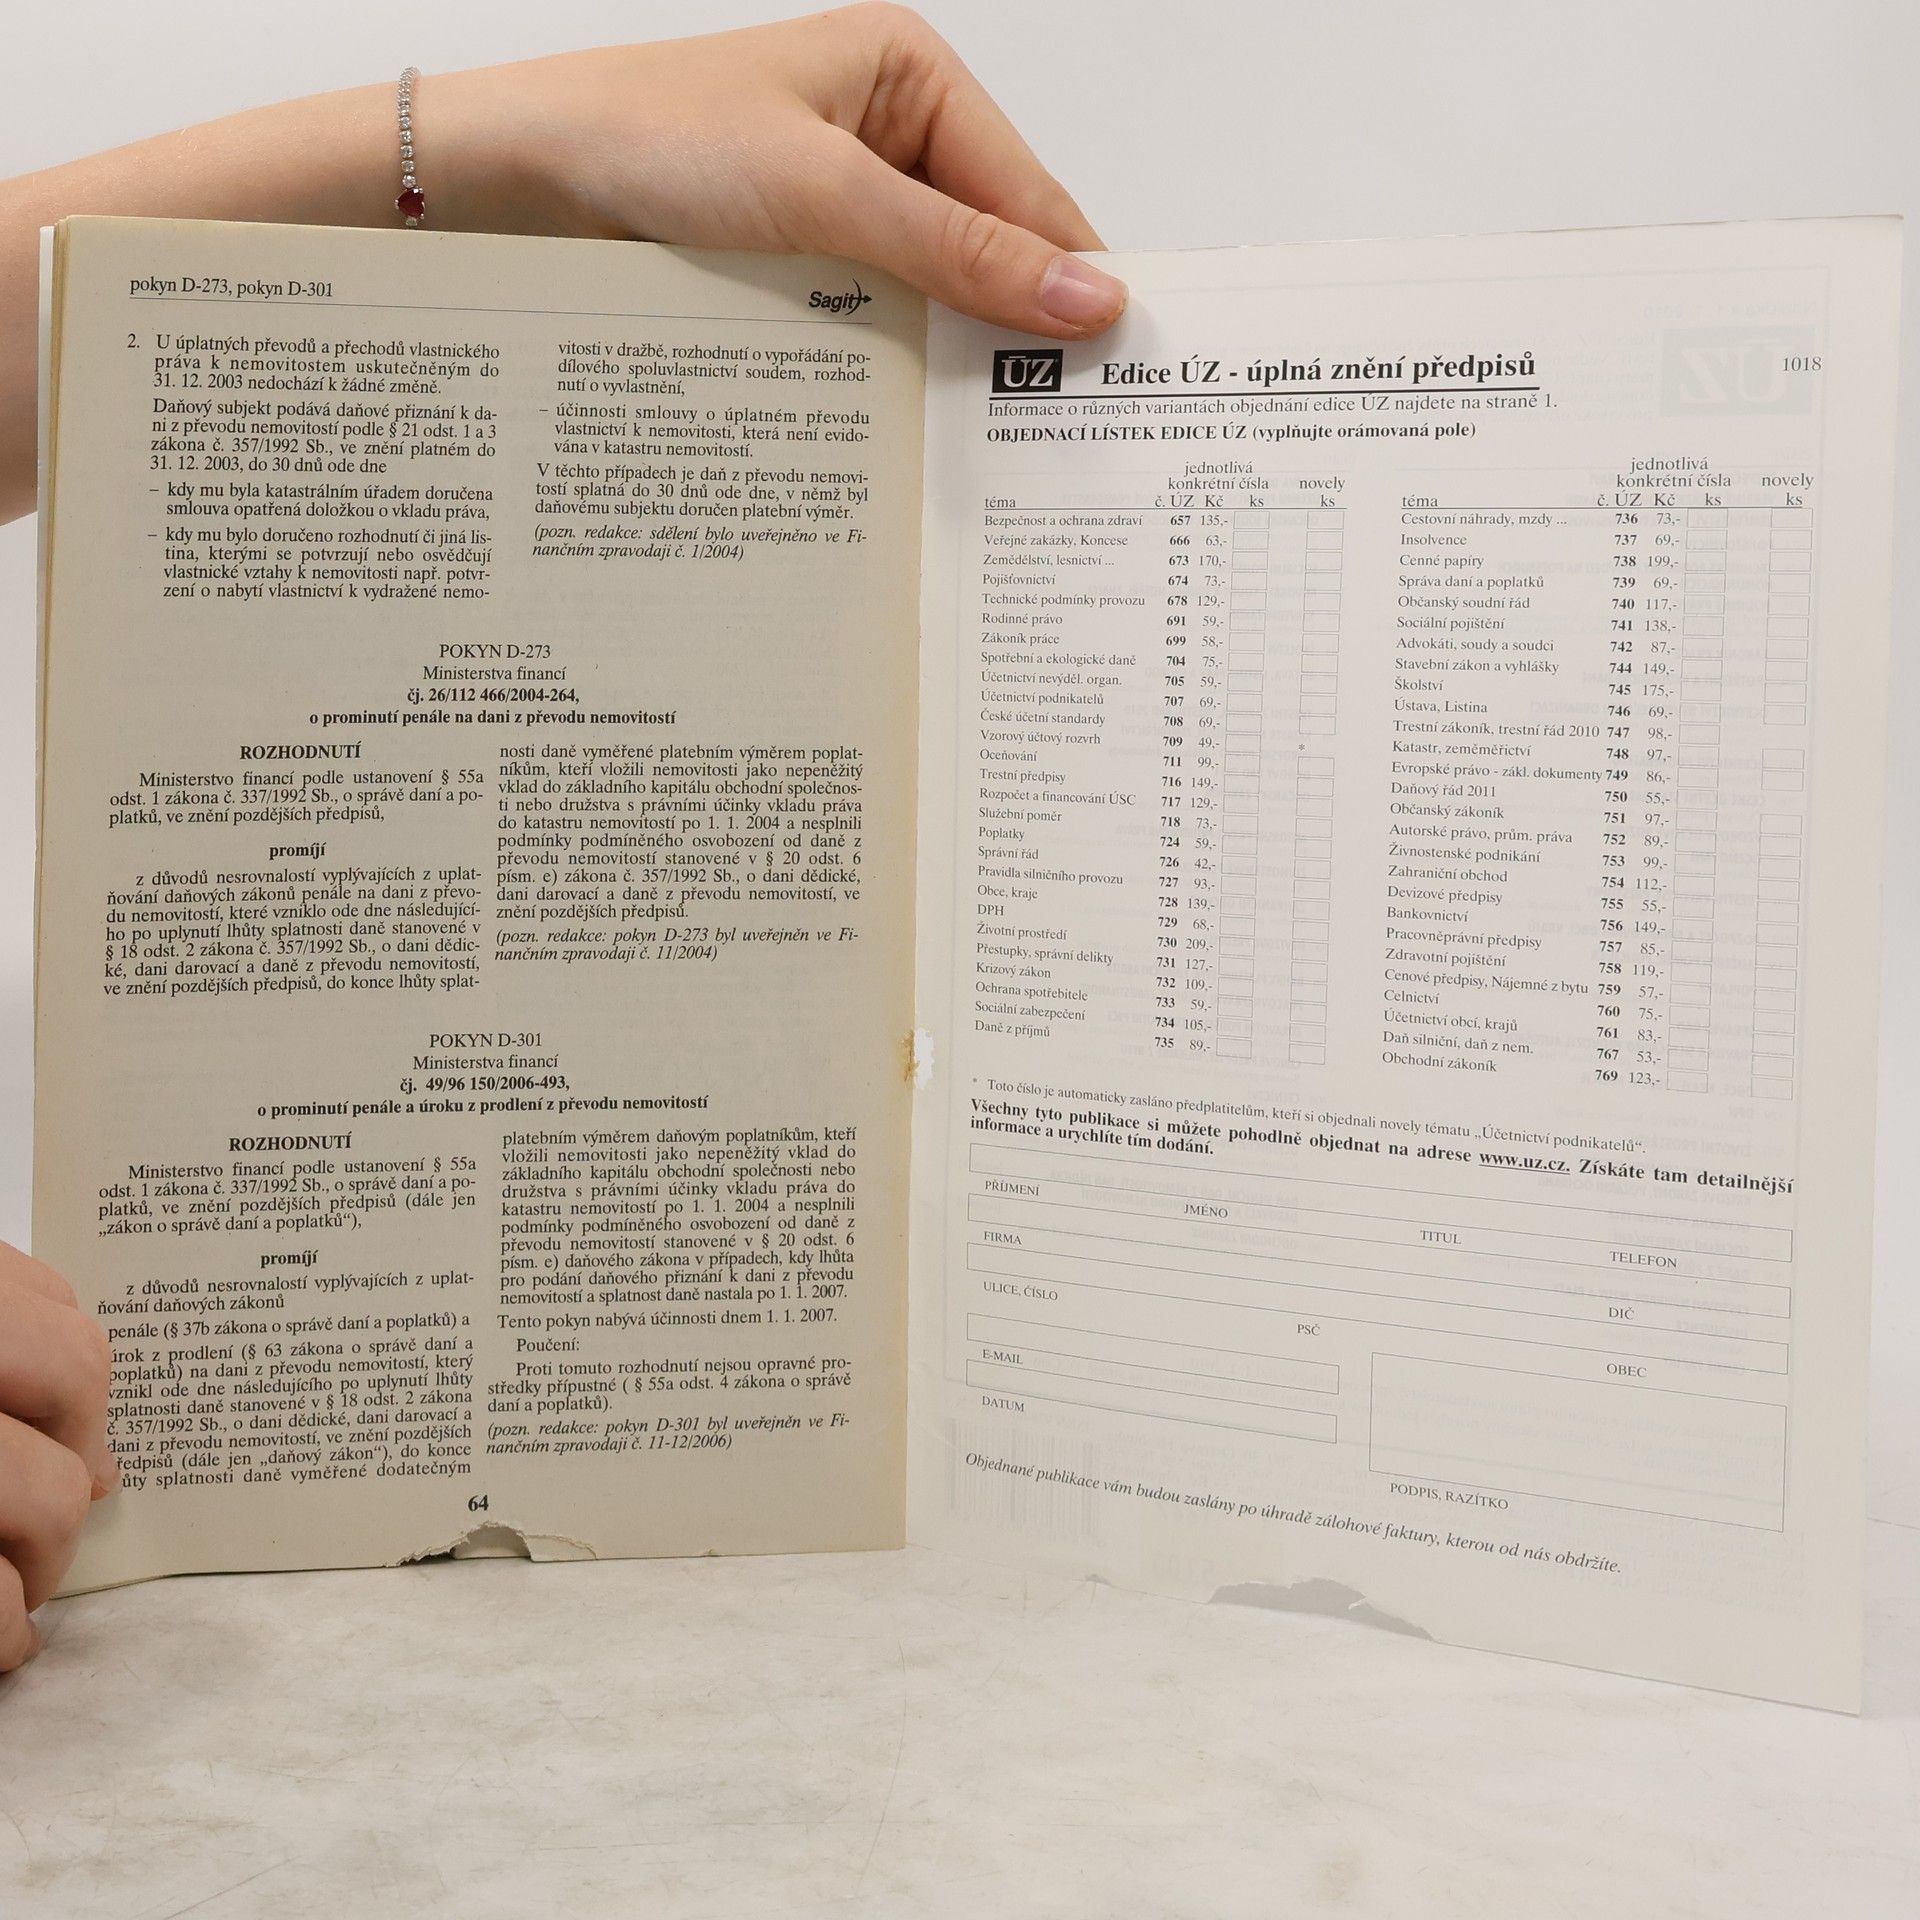 pokyn D-273, pokyn D-301
Sagit
2. U úplatných převodů a přechodů vlastnického
práva k nemovitostem uskutečněným do
31. 12. 2003 nedochází k žádné změně.
Daňový subjekt podává daňové přiznání k da-
ni z převodu nemovitostí podle § 21 odst. 1 a 3
zákona č. 357/1992 Sb., ve znění platném do
31. 12. 2003, do 30 dnů ode dne
– kdy mu byla katastrálním úřadem doručena
smlouva opatřená doložkou o vkladu práva,
– kdy mu bylo doručeno rozhodnutí či jiná lis-
tina, kterými se potvrzují nebo osvědčují
vlastnické vztahy k nemovitosti např. potvr-
zení o nabytí vlastnictví k vydražené nemo-
vitosti v dražbě, rozhodnutí o vypořádání po-
dílového spoluvlastnictví soudem, rozhod-
nutí o vyvlastnění,
– účinnosti smlouvy o úplatném převodu
vlastnictví k nemovitosti, která není evido-
vána v katastru nemovitostí.
V těchto případech je daň z převodu nemovi-
tostí splatná do 30 dnů ode dne, v němž byl
daňovému subjektu doručen platební výměr.
(pozn. redakce: sdělení bylo uveřejněno ve Fi-
nančním zpravodaji č. 1/2004)
POKYN D-273
Ministerstva financí
čj. 26/112 466/2004-264,
o prominutí penále na dani z převodu nemovitostí
ROZHODNUTÍ
Ministerstvo financí podle ustanovení § 55a
odst. 1 zákona č. 337/1992 Sb., o správě daní a po-
platků, ve znění pozdějších předpisů,
promíjí
z důvodů nesrovnalostí vyplývajících z uplat-
ňování daňových zákonů penále na dani z převo-
du nemovitostí, které vzniklo ode dne následující-
ho po uplynutí lhůty splatnosti daně stanovené v
§ 18 odst. 2 zákona č. 357/1992 Sb., o dani dědic-
ké, dani darovací a daně z převodu nemovitostí,
ve znění pozdějších předpisů, do konce lhůty splat-
nosti daně vyměřené platebním výměrem poplat-
níkům, kteří vložili nemovitosti jako nepeněžitý
vklad do základního kapitálu obchodní společnos-
ti nebo družstva s právními účinky vkladu práva
do katastru nemovitostí po 1. 1. 2004 a nesplnili
podmínky podmíněného osvobození od daně z
převodu nemovitostí stanovené v § 20 odst. 6
písm. e) zákona č. 357/1992 Sb., o dani dědické,
dani darovací a daně z převodu nemovitostí, ve
znění pozdějších předpisů.
(pozn. redakce: pokyn D-273 byl uveřejněn ve Fi-
nančním zpravodaji č. 11/2004)
POKYN D-301
Ministerstva financí
čj. 49/96 150/2006-493,
o prominutí penále a úroku z prodlení z převodu nemovitostí
ROZHODNUTÍ
Ministerstvo financí podle ustanovení § 55a
odst. 1 zákona č. 337/1992 Sb., o správě daní a po-
platků, ve znění pozdějších předpisů (dále jen
„zákon o správě daní a poplatků“),
promíjí
z důvodů nesrovnalostí vyplývajících z uplat-
ňování daňových zákonů
penále (§ 37b zákona o správě daní a poplatků) a
úrok z prodlení (§ 63 zákona o správě daní a
poplatků) na dani z převodu nemovitostí, který
vznikl ode dne následujícího po uplynutí lhůty
splatnosti daně stanovené v § 18 odst. 2 zákona
č. 357/1992 Sb., o dani dědické, dani darovací a
dani z převodu nemovitostí, ve znění pozdějších
ředpisů (dále jen „daňový zákon“), do konce
ůty splatnosti daně vyměřené dodatečným
platebním výměrem daňovým poplatníkům, kteří
vložili nemovitosti jako nepeněžitý vklad do
základního kapitálu obchodní společnosti nebo
družstva s právními účinky vkladu práva do
katastru nemovitostí po 1. 1. 2004 a nesplnili
podmínky podmíněného osvobození od daně z
převodu nemovitostí stanovené v § 20 odst. 6
písm. e) daňového zákona v případech, kdy lhůta
pro podání daňového přiznání k dani z převodu
nemovitostí a splatnost daně nastala po 1. 1. 2007.
Tento pokyn nabývá účinnosti dnem 1. 1. 2007.
Poučení:
Proti tomuto rozhodnutí nejsou opravné pro-
středky přípustné ( § 55a odst. 4 zákona o správě
daní a poplatků).
(pozn. redakce: pokyn D-301 byl uveřejněn ve Fi-
nančním zpravodaji č. 11-12/2006)
64
ÚZ Edice ÚZ - úplná znění předpisů 1018
Informace o různých variantách objednání edice ÚZ najdete na straně 1.
OBJEDNACÍ LÍSTEK EDICE ÚZ (vyplňujte orámovaná pole)
jednotlivá
konkrétní čísla novely
téma č. ÚZ Kč ks ks
Bezpečnost a ochrana zdraví 657 135,-
Veřejné zakázky, Koncese 666 63,-
Zemědělství, lesnictví ... 673 170,-
Pojišťovnictví 674 73,-
Technické podmínky provozu 678 129,-
Rodinné právo 691 59,-
Zákoník práce 699 58,-
Spotřební a ekologické daně 704 75,-
Účetnictví nevýděl. organ. 705 59,-
Účetnictví podnikatelů 707 69,-
České účetní standardy 708 69,-
Vzorový účtový rozvrh 709 49,- *
Oceňování 711 99,-
Trestní předpisy 716 149,-
Rozpočet a financování ÚSC 717 129,-
Služební poměr 718 73,-
Poplatky 724 59,-
Správní řád 726 42,-
Pravidla silničního provozu 727 93,-
Obce, kraje 728 139,-
DPH 729 68,-
Životní prostředí 730 209,-
Přestupky, správní delikty 731 127,-
Krizový zákon 732 109,-
Ochrana spotřebitele 733 59,-
Sociální zabezpečení 734 105,-
Daně z příjmů 735 89,-
jednotlivá
konkrétní čísla novely
téma č. ÚZ Kč ks ks
Cestovní náhrady, mzdy ... 736 73,-
Insolvence 737 69,-
Cenné papíry 738 199,-
Správa daní a poplatků 739 69,-
Občanský soudní řád 740 117,-
Sociální pojištění 741 138,-
Advokáti, soudy a soudci 742 87,-
Stavební zákon a vyhlášky 744 149,-
Školství 745 175,-
Ústava, Listina 746 69,-
Trestní zákoník, trestní řád 2010 747 98,-
Katastr, zeměměřictví 748 97,-
Evropské právo - zákl. dokumenty 749 86,-
Daňový řád 2011 750 55,-
Občanský zákoník 751 97,-
Autorské právo, prům. práva 752 89,-
Živnostenské podnikání 753 99,-
Zahraniční obchod 754 112,-
Devizové předpisy 755 55,-
Bankovnictví 756 149,-
Pracovněprávní předpisy 757 85,-
Zdravotní pojištění 758 119,-
Cenové předpisy, Nájemné z bytu 759 57,-
Celnictví 760 75,-
Účetnictví obcí, krajů 761 83,-
Daň silniční, daň z nem. 767 53,-
Obchodní zákoník 769 123,-
* Toto číslo je automaticky zasláno předplatitelům, kteří si objednali novely tématu „Účetnictví podnikatelů“.
Všechny tyto publikace si můžete pohodlně objednat na adrese www.uz.cz. Získáte tam detailnější
informace a urychlíte tím dodání.
PŘÍJMENÍ JMÉNO TITUL TELEFON
FIRMA DIČ
ULICE, ČÍSLO PSČ OBEC
E-MAIL
DATUM
PODPIS, RAZÍTKO
Objednané publikace vám budou zaslány po úhradě zálohové faktury, kterou od nás obdržíte.